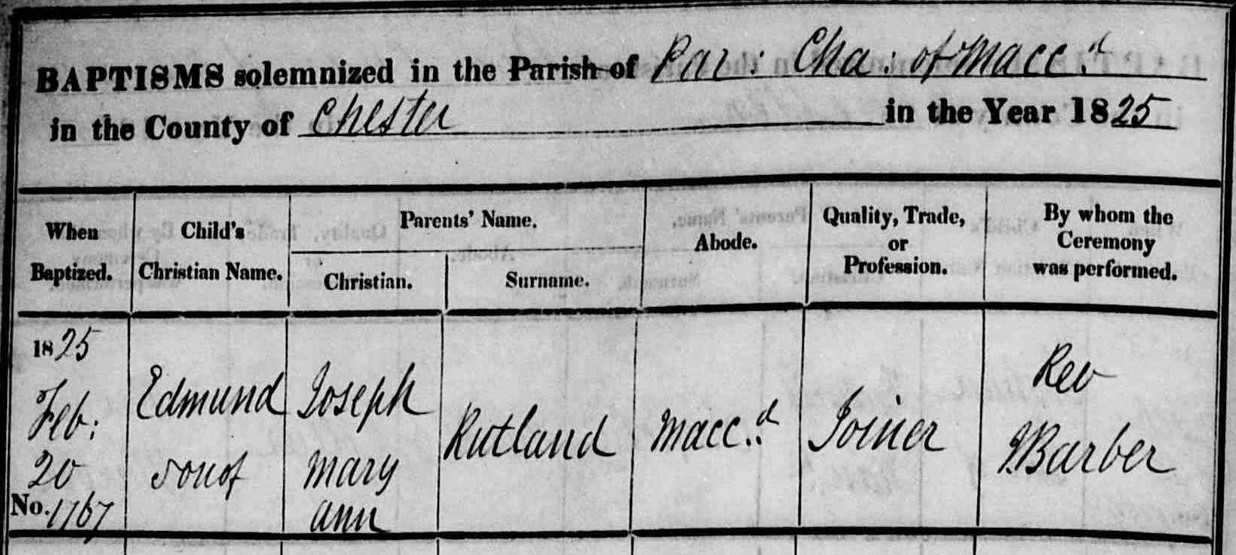 BAPTISMS solemnized in the Parish of Par: Cha: of Macc.d
in the County of Chester in the Year 1825
When Baptized.
Child's Christian Name.
Parents' Name.
Christian.
Surname.
Abode.
Quality, Trade, or Profession.
By whom the Ceremony was performed.
1825
Feb:
20
No. 1767
Edmund
son of
Joseph
Mary
Ann
Rutland
Macc.d
Joiner
Rev
J Barber